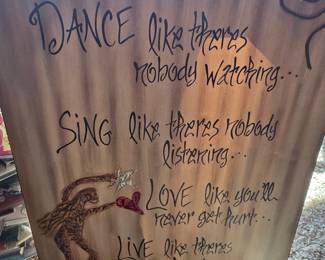 DANCE like theres
nobody watching...
SiNG like theres nobody
listening...
LOVE like you'll
never get hurt...
LIVE like theres